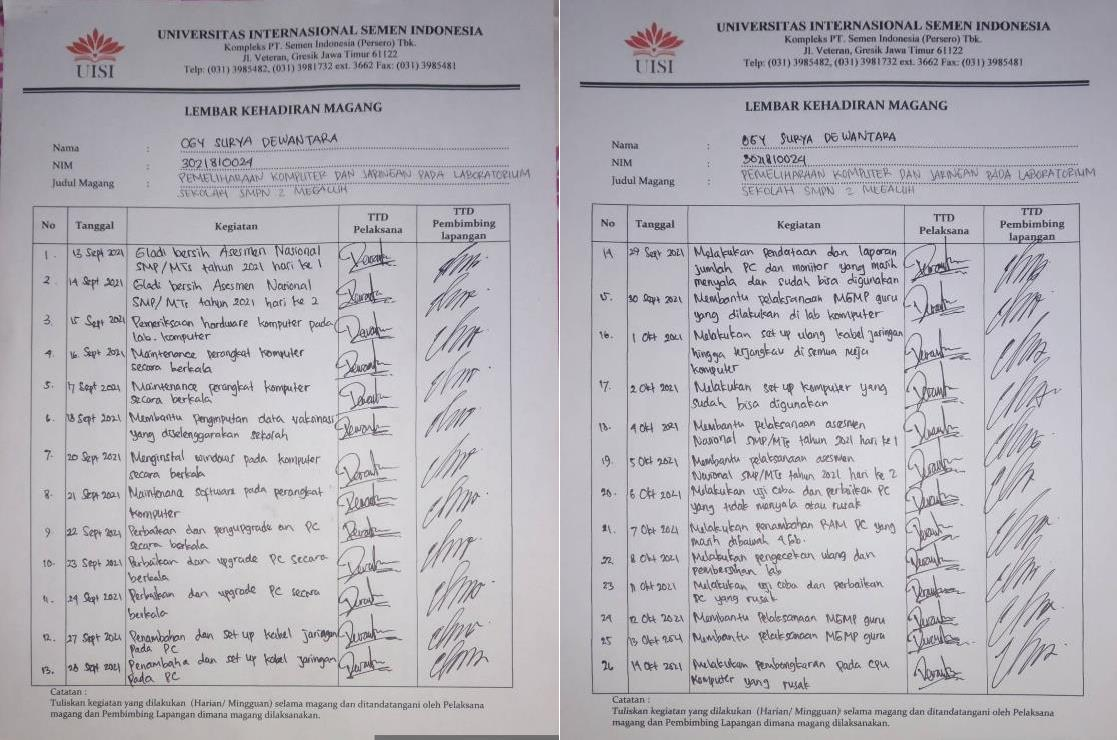 UISI
UNIVERSITAS INTERNASIONAL SEMEN INDONESIA
Kompleks PT. Semen Indonesia (Persero) Tbk.
Jl. Veteran, Gresik Jawa Timur 61122
Telp: (031) 3985482, (031) 3981732 ext. 3662 Fax: (031) 3985481
LEMBAR KEHADIRAN MAGANG
Nama : OGY SURYA DEWANTARA
NIM : 3021810024
Judul Magang : PEMELIHARAAN KOMPUTER DAN JARINGAN PADA LABORATORIUM
SEKOLAH SMPN 2 MEGALUH
No Tanggal Kegiatan TTD Pelaksana TTD Pembimbing lapangan
1. 13 Sept 2021 Gladi bersih Asesmen Nasional
SMP/MTs tahun 2021 hari ke 1
2. 14 Sept 2021 Gladi bersih Asesmen Nasional
SMP/MTs tahun 2021 hari ke 2
3. 15 Sept 2021 Pemeriksaan hardware komputer pada
lab. komputer
4. 16 Sept 2021 Maintenance perangkat komputer
secara berkala
5. 17 Sept 2021 Maintenance perangkat komputer
secara berkala
6. 18 Sept 2021 Membantu penginputan data vaksinasi
yang diselenggarakan sekolah
7. 20 Sept 2021 Menginstal windows pada komputer
secara berkala
8. 21 Sept 2021 Maintenance software pada perangkat
komputer
9 22 Sept 2021 Perbaikan dan pengupgrade an PC
secara berkala
10. 23 Sept 2021 Perbaikan dan upgrade PC secara
berkala
11. 24 Sept 2021 Perbaikan dan upgrade PC secara
berkala
12. 27 Sept 2021 Penambahan dan set up kabel jaringan
pada PC
13. 28 Sept 2021 Penambaha dan set up kabel jaringan
pada PC
Catatan :
Tuliskan kegiatan yang dilakukan (Harian/ Mingguan) selama magang dan ditandatangani oleh Pelaksana
magang dan Pembimbing Lapangan dimana magang dilaksanakan.
UISI
UNIVERSITAS INTERNASIONAL SEMEN INDONESIA
Kompleks PT. Semen Indonesia (Persero) Tbk.
Jl. Veteran, Gresik Jawa Timur 61122
Telp: (031) 3985482, (031) 3981732 ext. 3662 Fax: (031) 3985481
LEMBAR KEHADIRAN MAGANG
Nama : OGY SURYA DEWANTARA
NIM : 3021810024
Judul Magang : PEMELIHARAAN KOMPUTER DAN JARINGAN PADA LABORATORIUM
SEKOLAH SMPN 2 MEGALUH
No Tanggal Kegiatan TTD Pelaksana TTD Pembimbing lapangan
14 29 Sept 2021 Melakukan pendataan dan laporan
jumlah PC dan monitor yang masih
menyala dan sudah bisa digunakan
15. 30 Sept 2021 Membantu pelaksanaan MGMP guru
yang dilakukan di lab komputer
16. 1 Okt 2021 Melakukan set up ulang kabel jaringan
hingga terjangkau di semua meja
komputer
17. 2 Okt 2021 Melakukan set up komputer yang
sudah bisa digunakan
18. 4 Okt 2021 Membantu pelaksanaan asesmen
Nasional SMP/MTs tahun 2021 hari ke 1
19. 5 Okt 2021 Membantu pelaksanaan asesmen
Nasional SMP/MTs tahun 2021 hari ke 2
20. 6 Okt 2021 Melakukan uji coba dan perbaikan PC
yang tidak menyala atau rusak
21. 7 Okt 2021 Melakukan penambahan RAM PC yang
masih dibawah 4 Gb.
22. 8 Okt 2021 Melakukan pengecekan ulang dan
pembersihan lab
23 11 Okt 2021 Melakukan uji coba dan perbaikan
PC yang rusak
24 12 Okt 2021 Membantu Pelaksanaan MGMP guru
25 13 Okt 2021 Membantu Pelaksanaan MGMP guru
26 14 Okt 2021 Melakukan pembongkaran pada CPU
Komputer yang rusak
Catatan :
Tuliskan kegiatan yang dilakukan (Harian/ Mingguan) selama magang dan ditandatangani oleh Pelaksana
magang dan Pembimbing Lapangan dimana magang dilaksanakan.